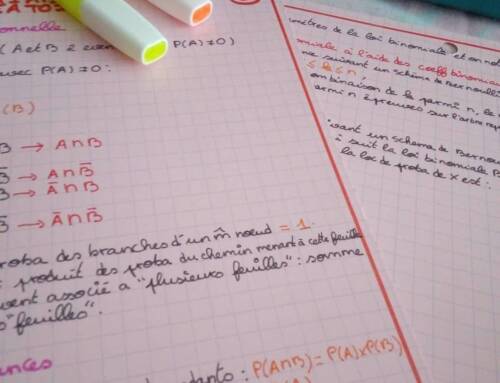 onnelle
( A et B 2 even P(A) ≠ 0)
avec P(A) ≠ 0 :
(B)
B → A∩B
B̅ → A∩B̅
B → A̅∩B
B̅ → A̅∩B̅
proba des branches d'un m̂ nœud = 1.
produit des proba du chemin menant à cette feuille
vent associé a "plusieurs feuilles" : somme
"feuilles".
ances
dants : P(A∩B) = P(A)×P(B)
mètres de la loi binomiale et on not
à l'aide des coeff binomiaux
suivant un schéma de Bernoulli
≤ k ≤ n,
ombinaison de k parmi n, le
armi n épreuves sur l'arbre rep
vant un schema de Bernou
à suit la loi binomiale B
la loi de proba de X est :